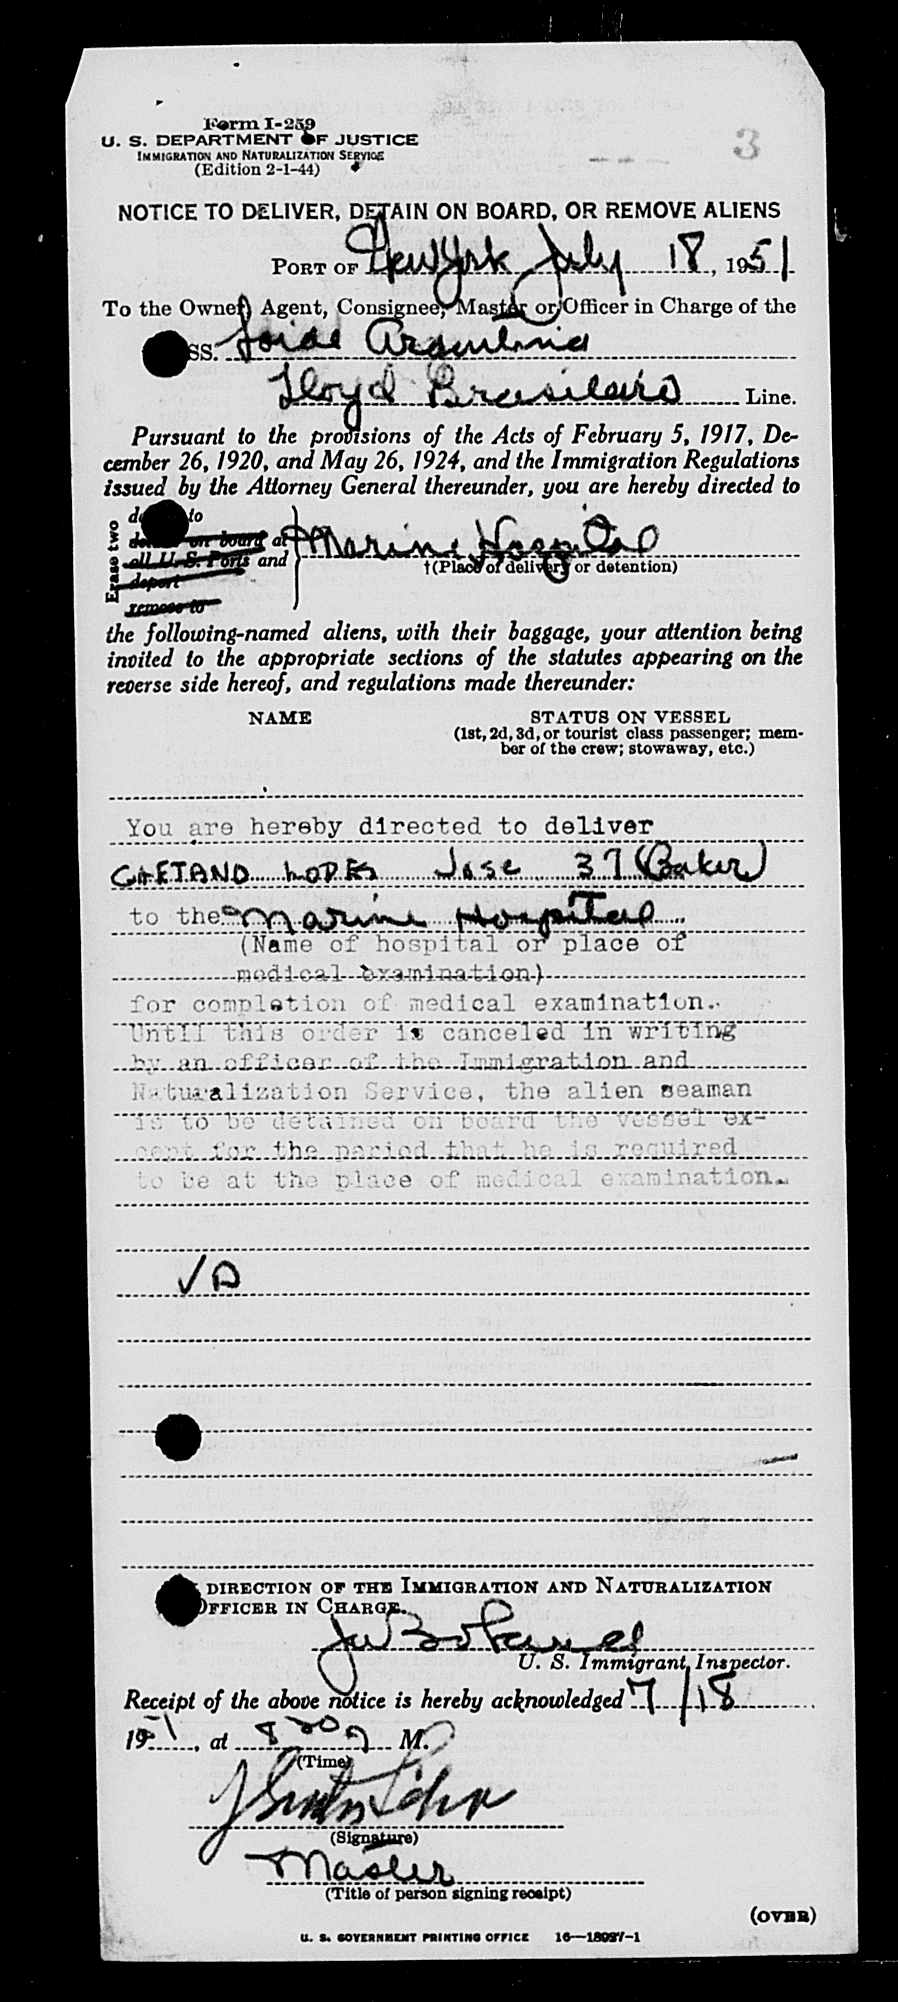 Form I-259
U. S. DEPARTMENT OF JUSTICE
IMMIGRATION AND NATURALIZATION SERVICE
(Edition 2-1-44)
3
NOTICE TO DELIVER, DETAIN ON BOARD, OR REMOVE ALIENS
PORT OF New York July 18, 1951
To the Owner, Agent, Consignee, Master or Officer in Charge of the
SS. Loide Argentina
Lloyd Brasileiro Line.
Pursuant to the provisions of the Acts of February 5, 1917, De-
cember 26, 1920, and May 26, 1924, and the Immigration Regulations
issued by the Attorney General thereunder, you are hereby directed to
Erase two
to
on board at
all U. S. Ports and
deport
remove to
Marine Hospital
†(Place of delivery or detention)
the following-named aliens, with their baggage, your attention being
invited to the appropriate sections of the statutes appearing on the
reverse side hereof, and regulations made thereunder:
NAME STATUS ON VESSEL
(1st, 2d, 3d, or tourist class passenger; mem-
ber of the crew; stowaway, etc.)
You are hereby directed to deliver
CAETANO LOPES Jose 37 (Baker)
to the Marine Hospital
(Name of hospital or place of
medical examination)
for completion of medical examination.
Until this order is canceled in writing
by an officer of the Immigration and
Naturalization Service, the alien seaman
is to be detained on board the vessel ex-
cept for the period that he is required
to be at the place of medical examination.
VD
DIRECTION OF THE IMMIGRATION AND NATURALIZATION
OFFICER IN CHARGE.
U. S. Immigrant Inspector.
Receipt of the above notice is hereby acknowledged 7/18
1951, at 8 M.
(Time)
(Signature)
Master
(Title of person signing receipt)
(OVER)
U. S. GOVERNMENT PRINTING OFFICE 16—18097-1